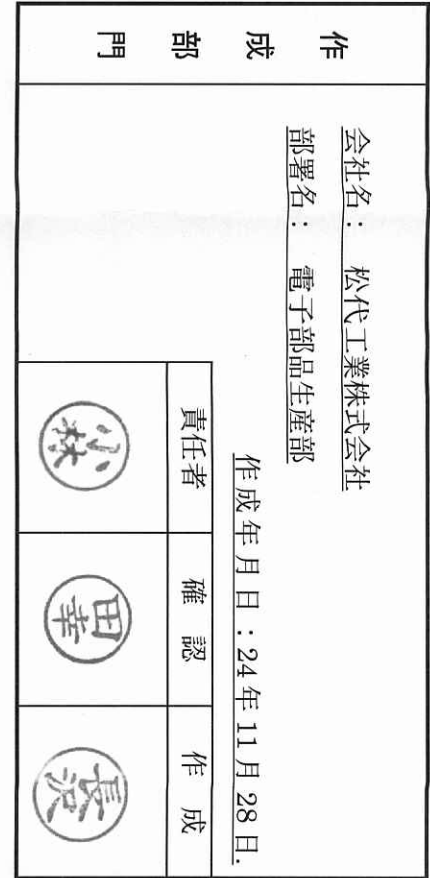 作成部門
会社名: 松代工業株式会社
部署名: 電子部品生産部
作成年月日:24年11月28日.
責任者 確認 作成
小林 田幸 長沢